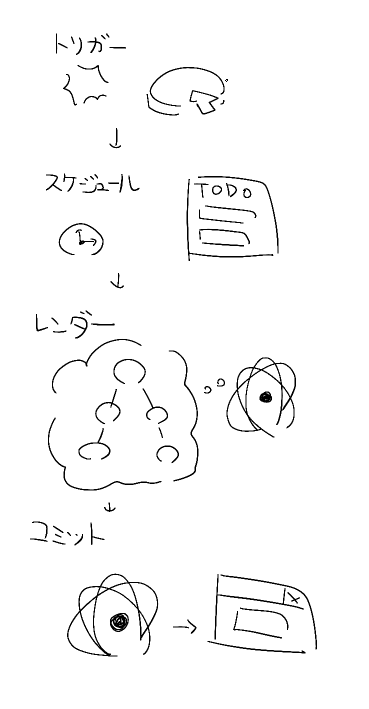 トリガー
スケジュール
TODO
レンダー
コミット